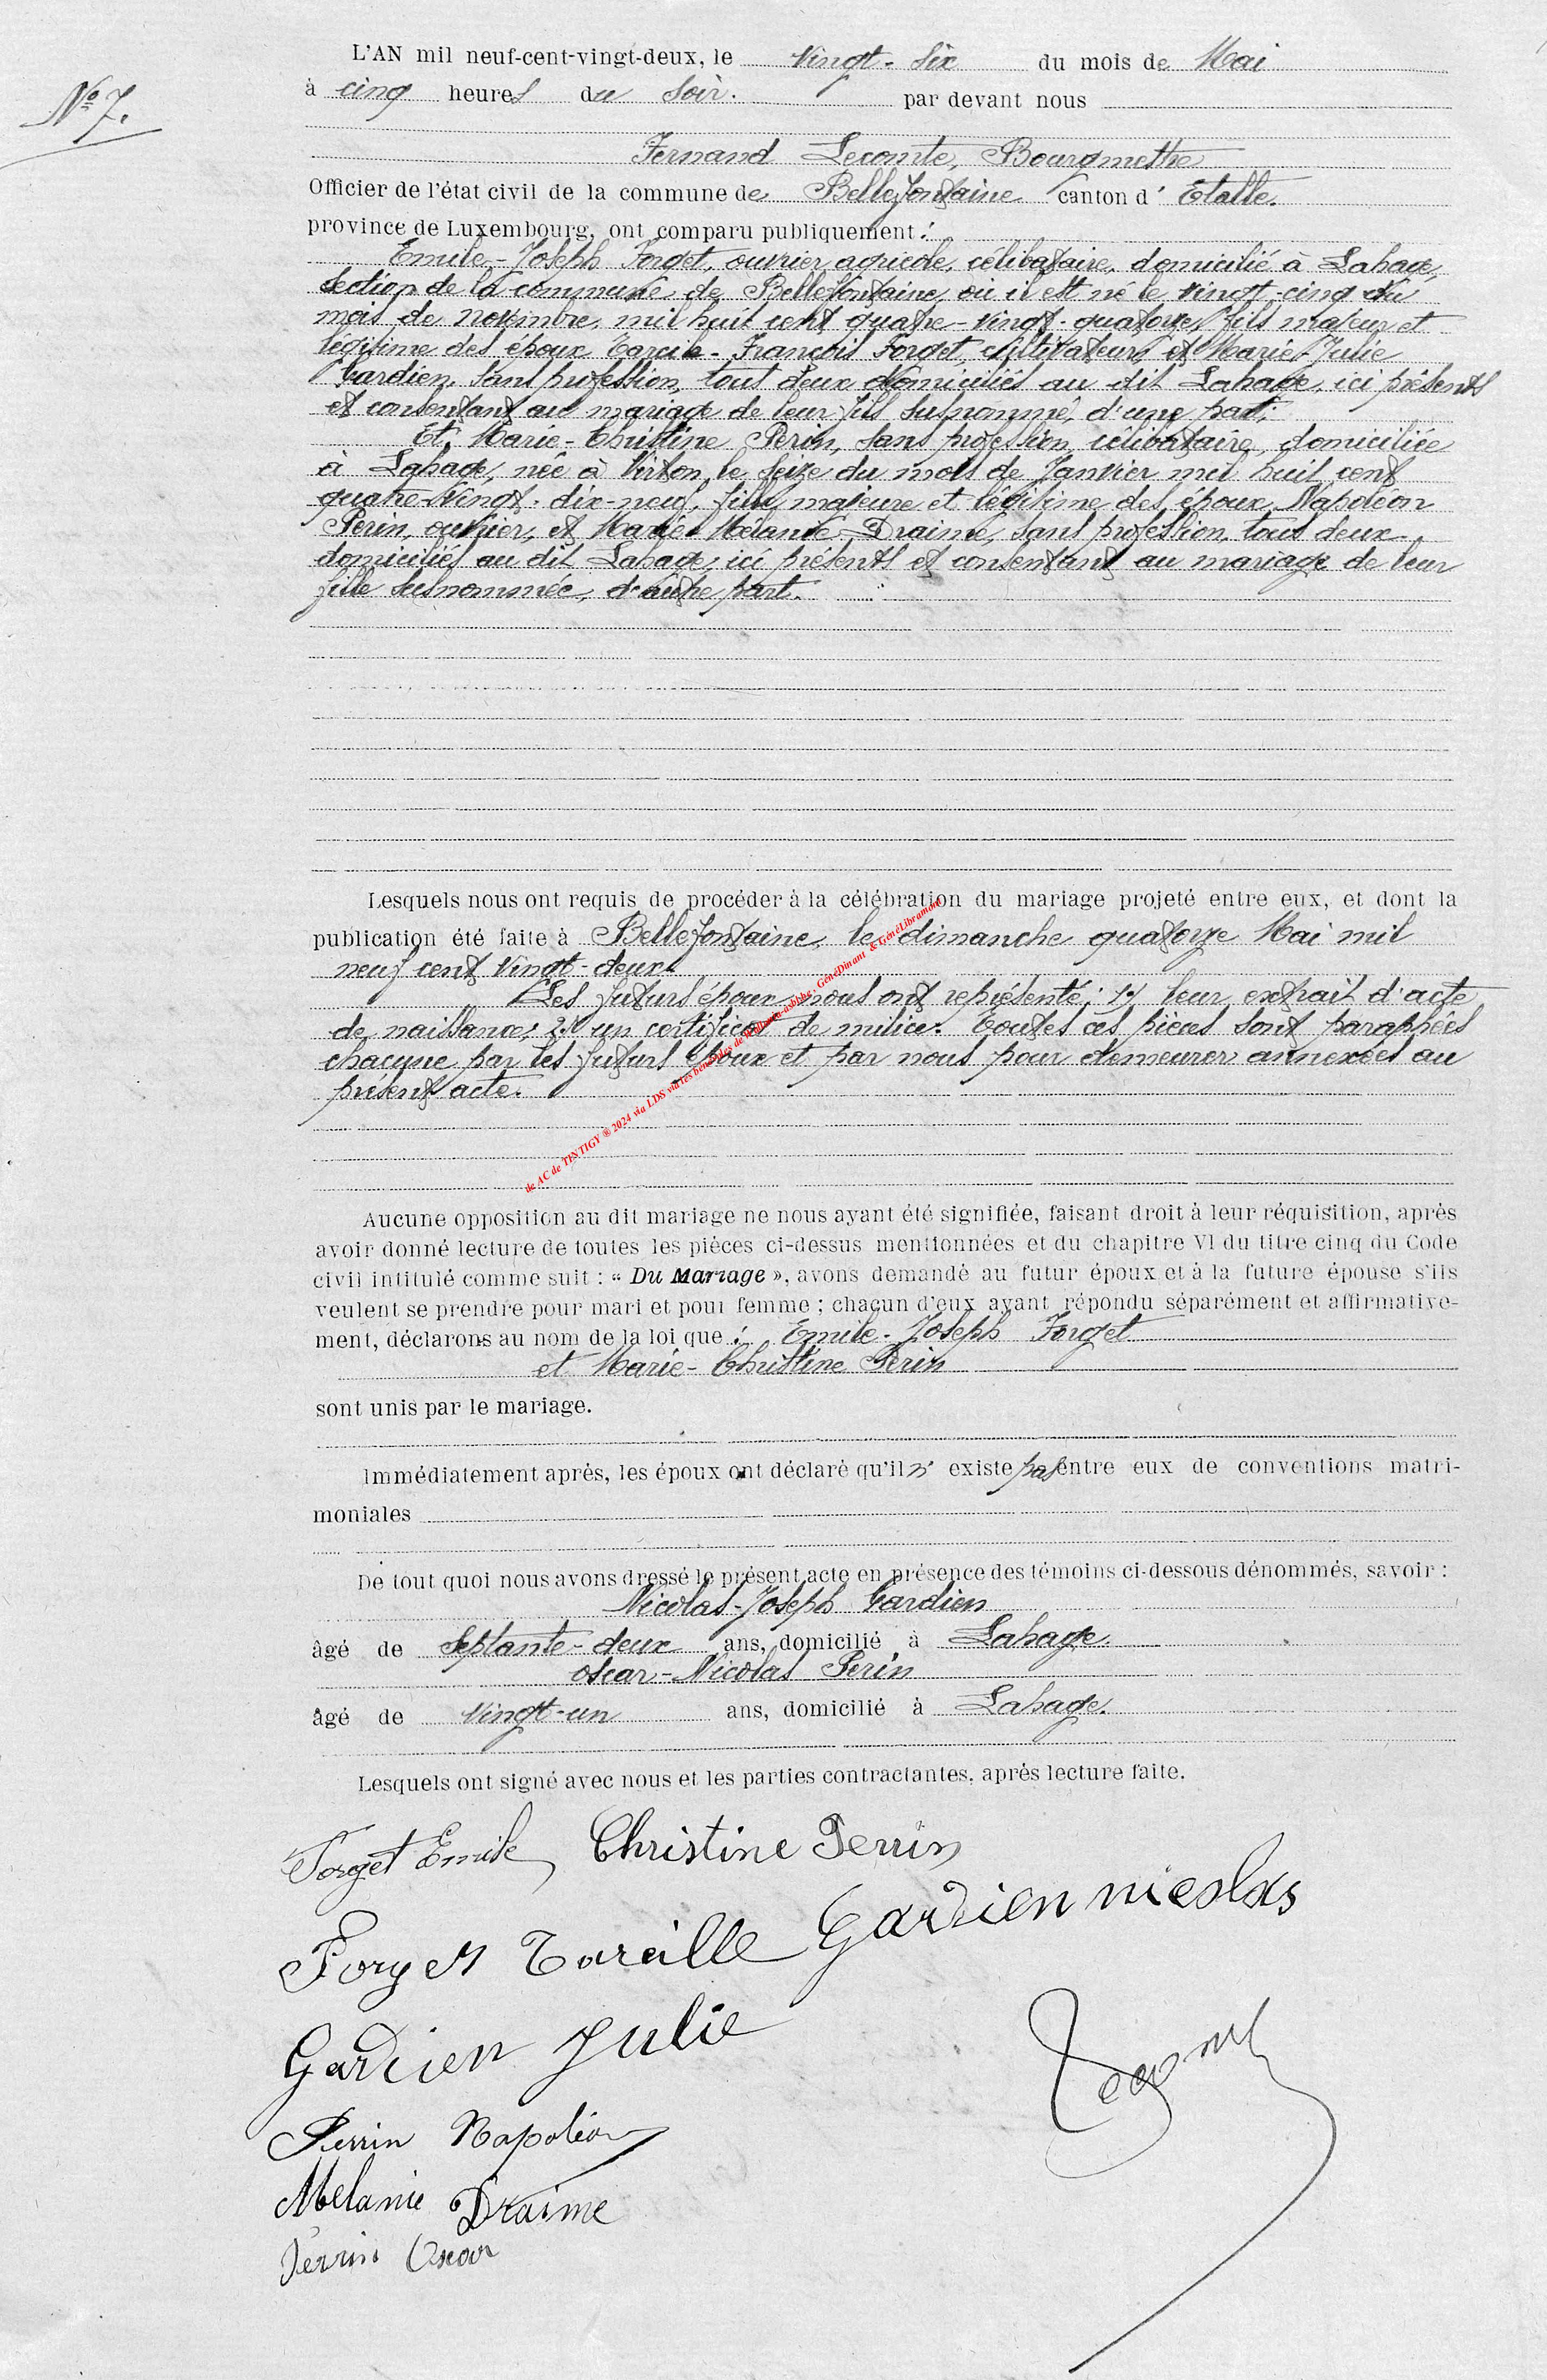 L'AN mil neuf-cent-vingt-deux, le vingt-six du mois de Mai
N° 7.
à cinq heures du soir. par devant nous
Fernand Lecomte, Bourgmestre
Officier de l'état civil de la commune de Bellefontaine canton d' Etalle.
province de Luxembourg, ont comparu publiquement :
Emile-Joseph Forget, ouvrier agricole, célibataire, domicilié à Lahage,
section de la commune de Bellefontaine, où il est né le vingt-cinq du
mois de novembre mil huit cent quatre-vingt-quatorze, fils majeur et
légitime des époux Tarcile-François Forget, cultivateur, et Marie-Julie
Gardien, sans profession, tous deux domiciliés au dit Lahage, ici présents
et consentant au mariage de leur fils susnommé, d'une part;
Et, Marie-Christine Perin, sans profession, célibataire, domiciliée
à Lahage, née à Virton, le seize du mois de Janvier mil huit cent
quatre-vingt-dix-neuf, fille majeure et légitime des époux Napoléon
Perin, ouvrier, et Marie-Mélanie Draime, sans profession, tous deux
domiciliés au dit Lahage, ici présents et consentant au mariage de leur
fille susnommée, d'autre part.
Lesquels nous ont requis de procéder à la célébration du mariage projeté entre eux, et dont la
publication été faite à Bellefontaine, le dimanche quatorze Mai mil
neuf cent vingt-deux.
Les futurs époux nous ont représenté : 1° leur extrait d'acte
de naissance; 2° un certificat de milice. Toutes ces pièces sont paraphées
chacune par les futurs époux et par nous pour demeurer annexées au
présent acte.
de AC de TINTIGY ® 2024 via LDS via les bénévoles de GénéDinant & GénéLibramont
Aucune opposition au dit mariage ne nous ayant été signifiée, faisant droit à leur réquisition, après
avoir donné lecture de toutes les pièces ci-dessus mentionnées et du chapitre VI du titre cinq du Code
civil intitulé comme suit : « Du Mariage », avons demandé au futur époux et à la future épouse s'ils
veulent se prendre pour mari et pour femme ; chacun d'eux ayant répondu séparément et affirmative-
ment, déclarons au nom de la loi que : Emile-Joseph Forget
et Marie-Christine Perin
sont unis par le mariage.
Immédiatement après, les époux ont déclaré qu'il n' existe pas entre eux de conventions matri-
moniales
De tout quoi nous avons dressé le présent acte en présence des témoins ci-dessous dénommés, savoir :
Nicolas-Joseph Gardien
âgé de septante-deux ans, domicilié à Lahage.
Oscar-Nicolas Perin
âgé de vingt-un ans, domicilié à Lahage.
Lesquels ont signé avec nous et les parties contractantes, après lecture faite.
Forget Emile Christine Perrin
Forget Tarcille Gardien nicolas
Gardien Julie
Perrin Napoléon
Melanie Draime
Perrin Oscar